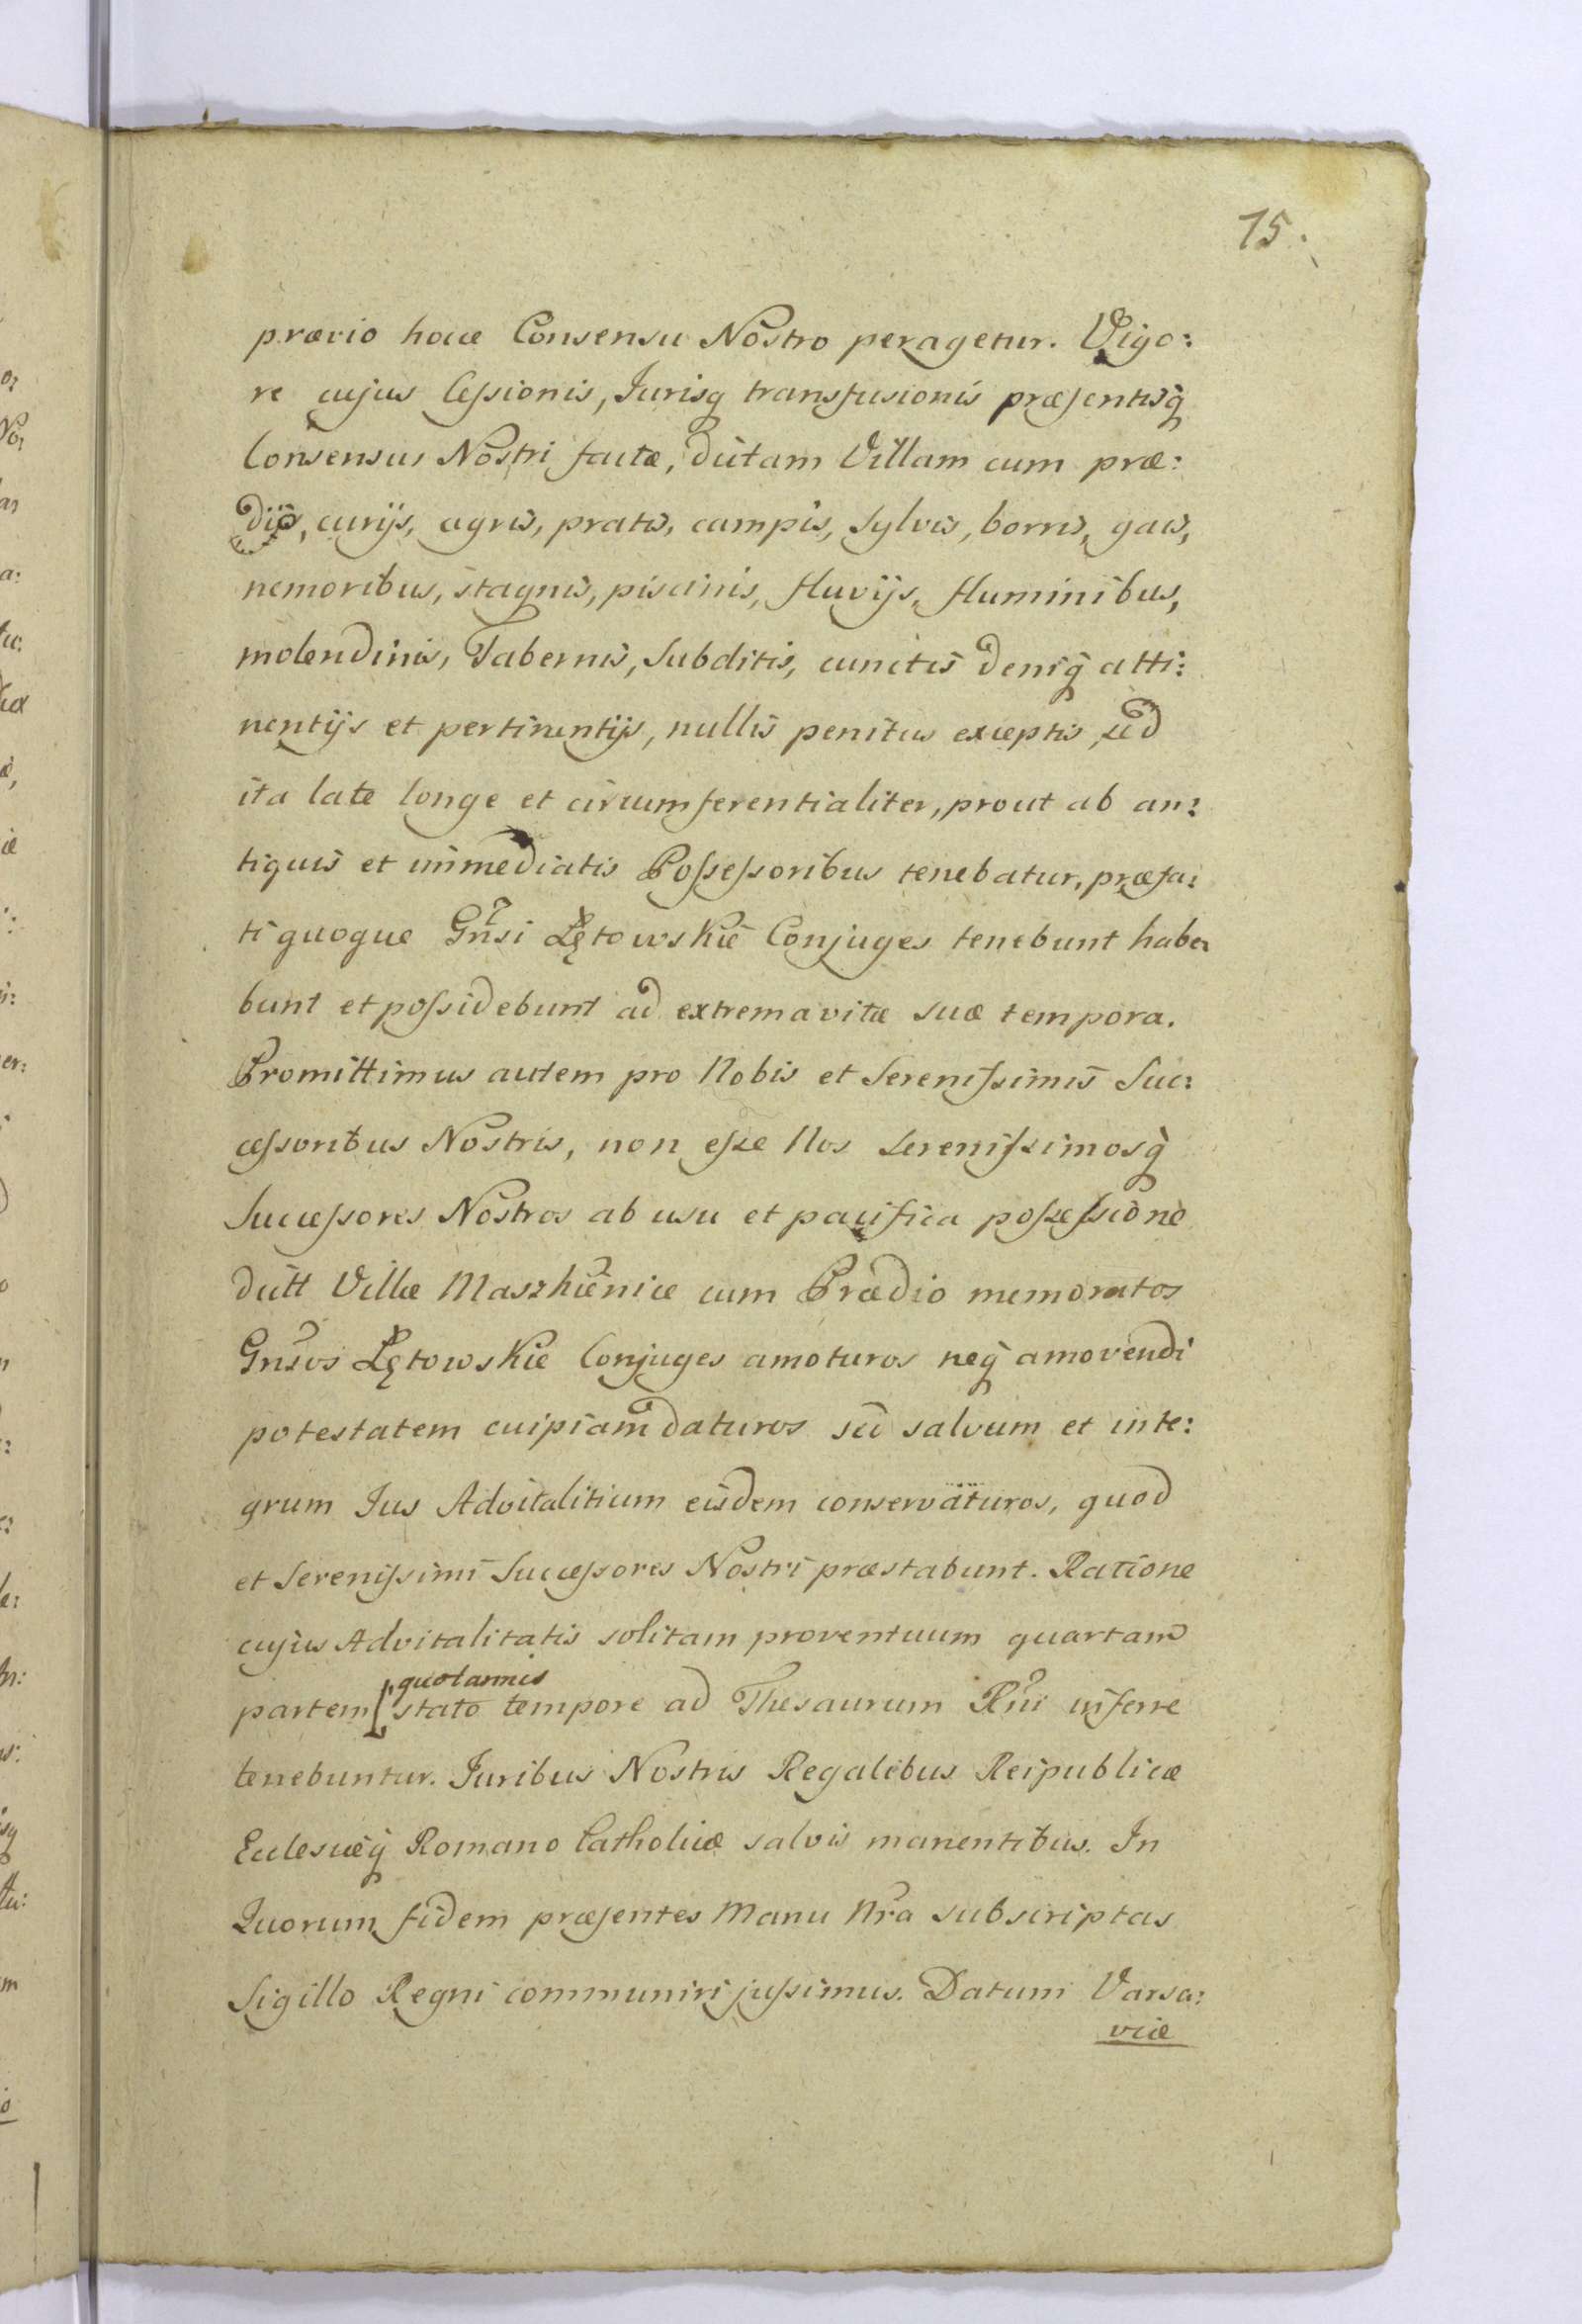 15.
prævio hocce Consensu Nostro peragetur. Vigo:
re cujus Cessionis, Jurisq̃ transfusionis præsentisq̃
Consensus Nostri factæ, dictam Villam cum præ:
dijs, curijs, agris, pratis, campis, Sylvis, borris, gais,
nemoribus, stagnis, piscinis, fluvijs, fluminibus,
molendinis, Tabernis, Subditis, cunctis deniq̃ atti:
nentijs et pertinentijs, nullis penitus exceptis, sed
ita late longe et circumferentialiter, prout ab an:
tiquis et immediatis Possessoribus tenebatur, præfa:
ti quoque Gnsi Łętowskie Conjuges tenebunt habe:
bunt et possidebunt ad extrema vitæ suæ tempora.
Promittimus autem pro Nobis et Serenissimis Suc:
cessoribus Nostris, non esse Nos Serenissimosq̃
Successores Nostros ab usu et pacifica possessione
dictt Villæ Maszkienice cum Prædio memoratos
Gnsos Łętowskie Conjuges amoturos neq̃ amovendi
potestatem cuipiam daturos sed salvum et inte:
grum Jus Advitalitium eisdem conservaturos, quod
et Serenissimi Successores Nostri præstabunt. Ratione
cujus Advitalitatis solitam proventuum quartam
quotannis
partem stato tempore ad Thesaurum Rni inferre
tenebuntur. Juribus Nostris Regalibus Reipublicæ
Ecclesiæq̃ Romano Catholicæ salvis manentibus. In
Quorum fidem præsentes Manu Nra subscriptas
Sigillo Regni communiri jussimus. Datum Varsa:
viæ